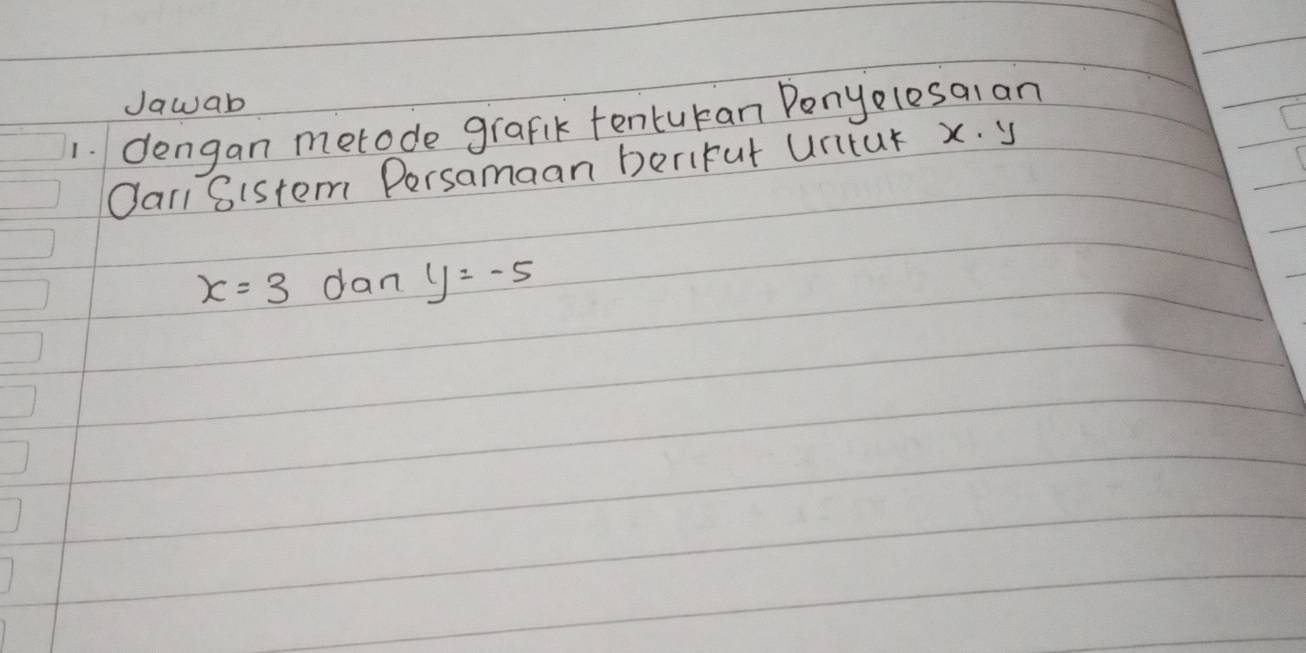 Jawab
1. dengan metode grafik tentukan Penyelesaian
dari Sistem Persamaan berikut Untuk x.y
x = 3 dan y = -5